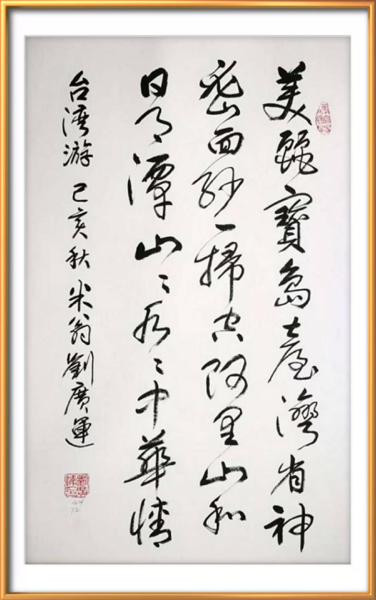 美麗寶島臺灣省神
密面紗一掃空阿里山和
日月潭山〻水〻中華情
台湾游 己亥秋 米翁劉廣運